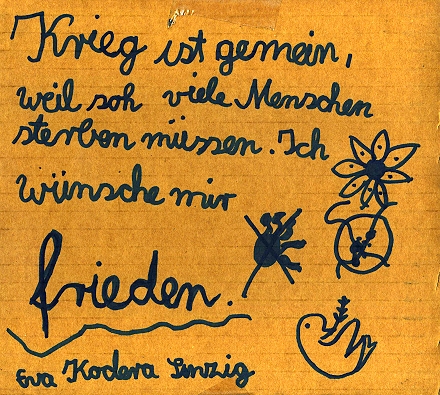 Krieg ist gemein,
weil soh viele Menschen
sterben müssen. Ich
wünsche mir
frieden.
Eva Kodera Sinzig